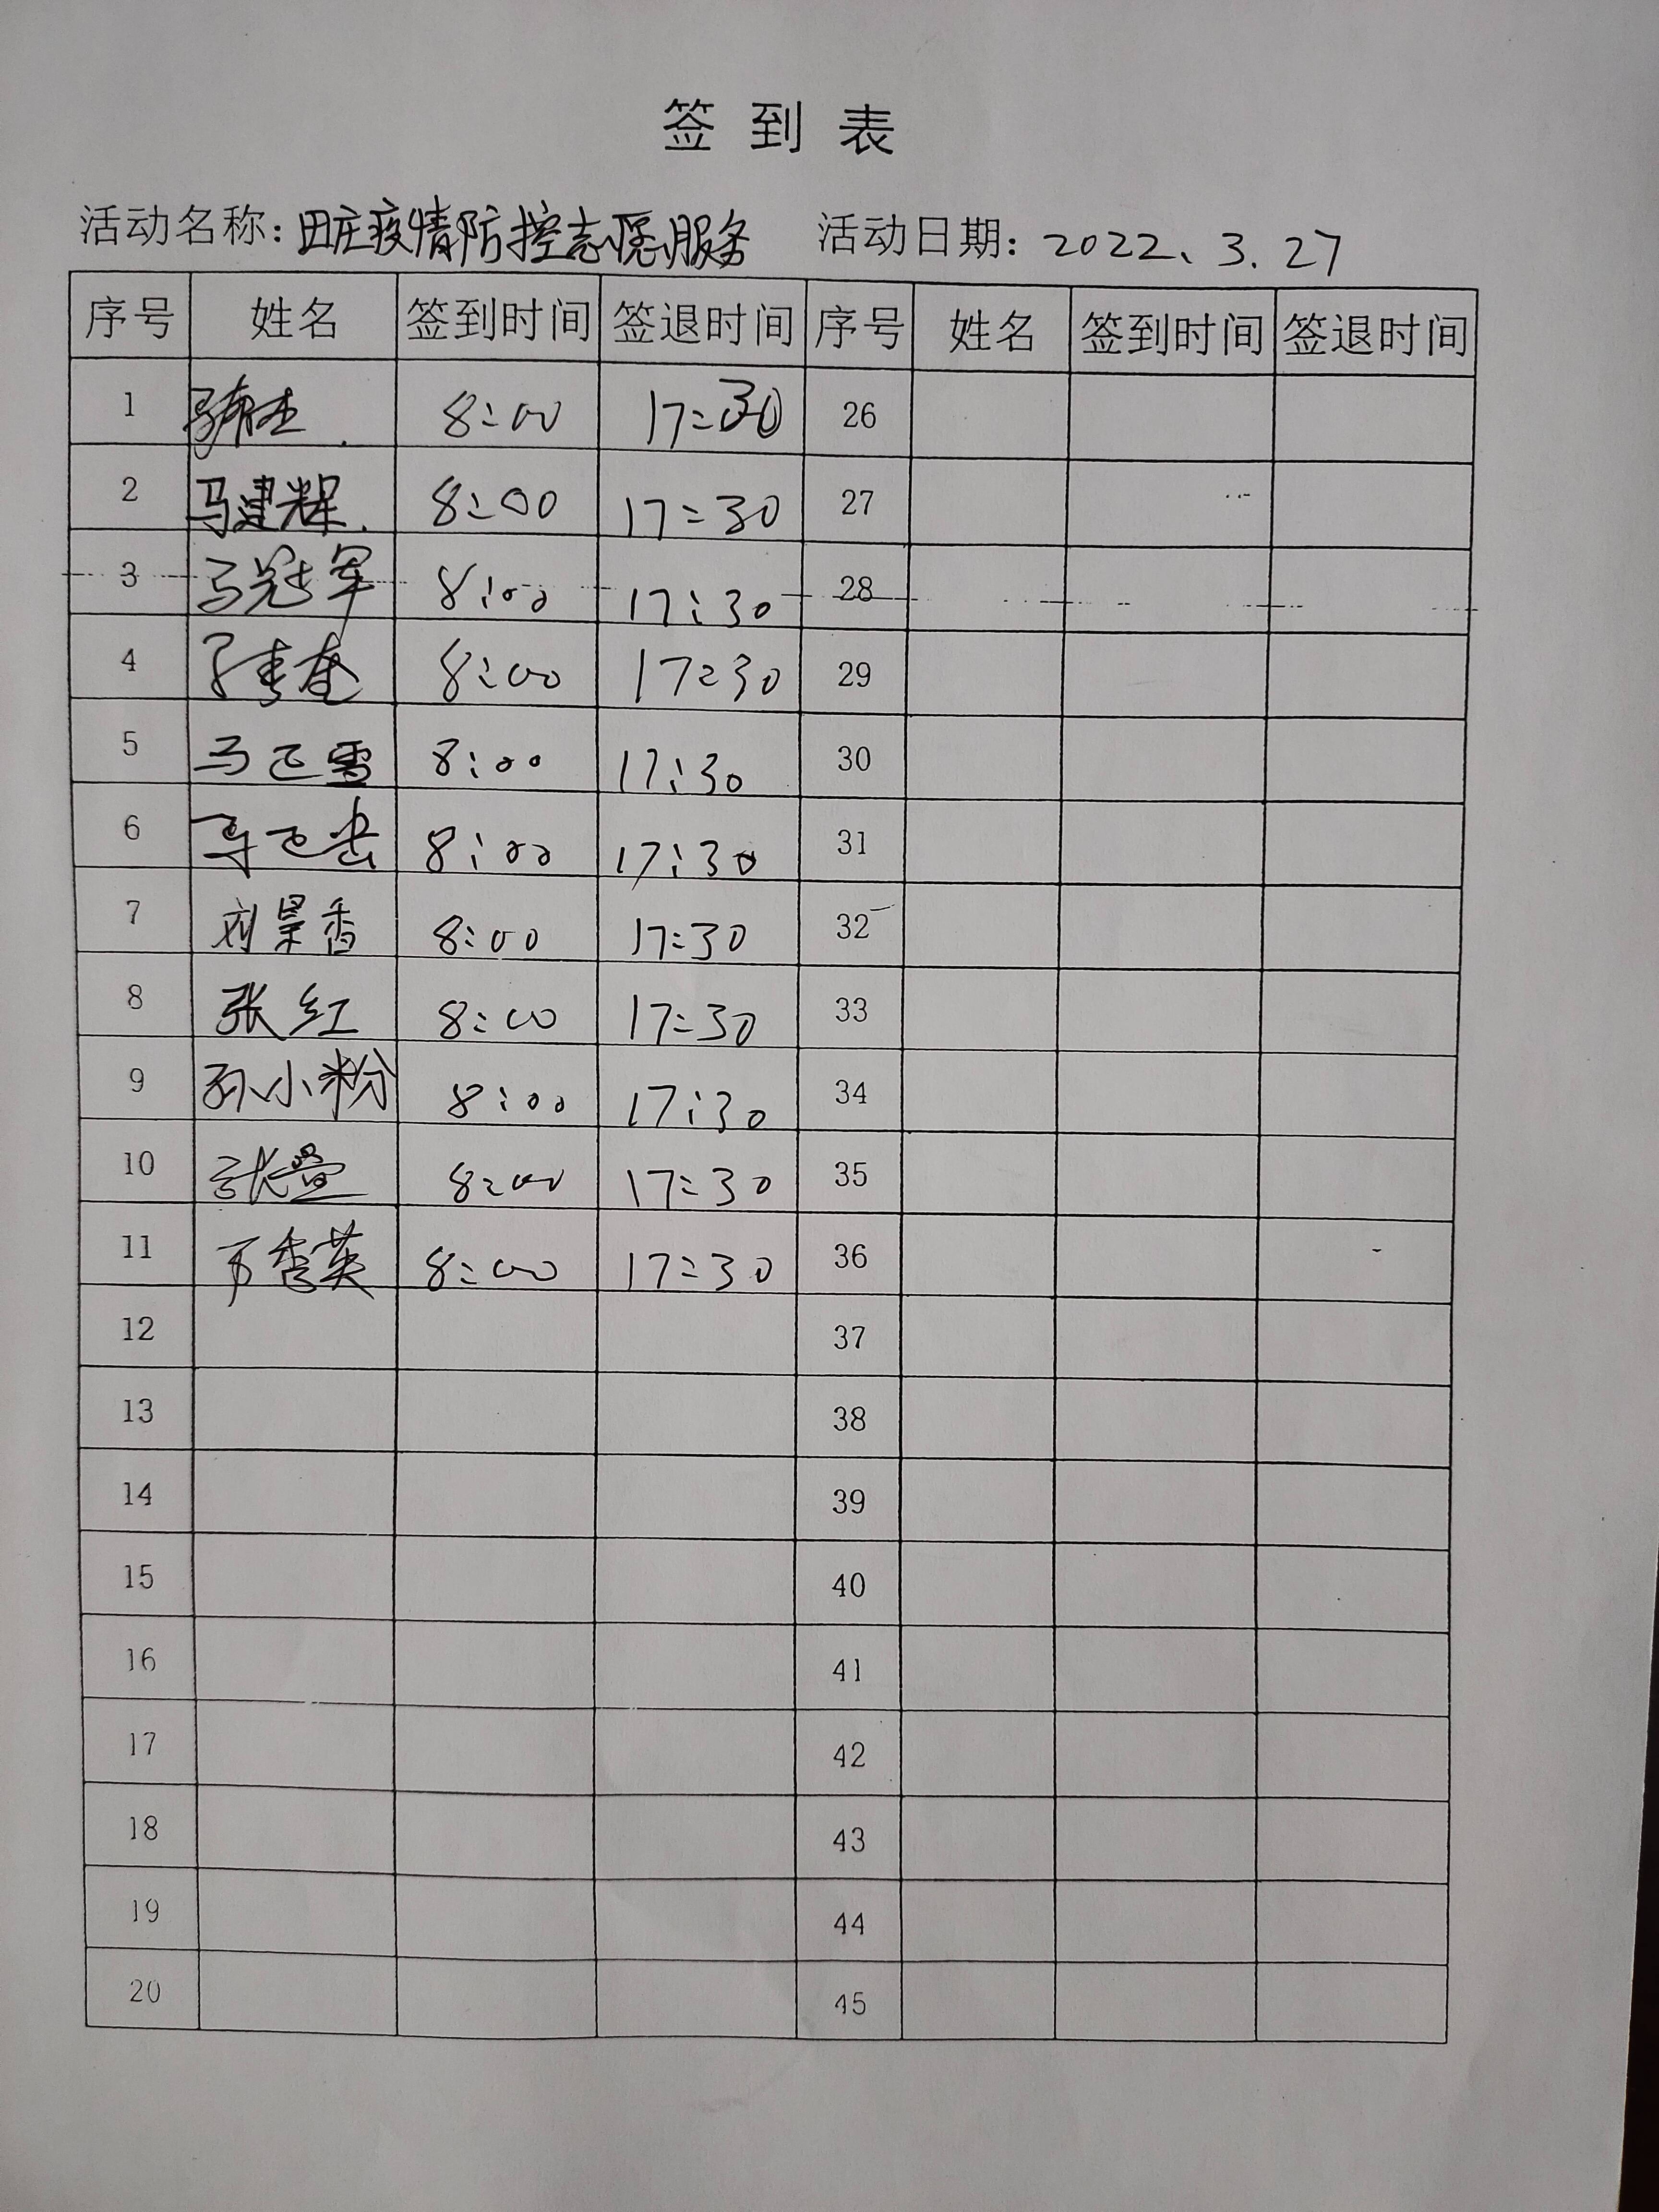 签到表
活动名称：田庄疫情防控志愿服务 活动日期：2022、3.27
序号 姓名 签到时间 签退时间 序号 姓名 签到时间 签退时间
1 8:00 17:30 26
2 马建辉 8:00 17:30 27
3 马冠军 8:00 17:30 28
4 8:00 17:30 29
5 马飞雪 8:00 17:30 30
6 8:00 17:30 31
7 刘景香 8:00 17:30 32
8 张红 8:00 17:30 33
9 孙小粉 8:00 17:30 34
10 张 8:00 17:30 35
11 秀英 8:00 17:30 36
12 37
13 38
14 39
15 40
16 41
17 42
18 43
19 44
20 45